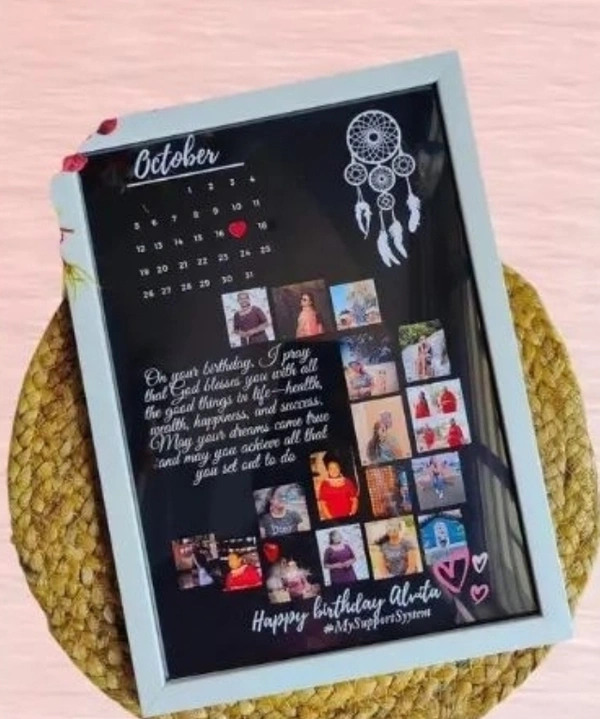 October
1 2 3 4
5 6 7 8 9 10 11
12 13 14 15 16 18
19 20 21 22 23 24 25
26 27 28 29 30 31
On your birthday, I pray
that God blesses you with all
the good things in life—health,
wealth, happiness, and success.
May your dreams come true
and may you achieve all that
you set out to do
Happy birthday Alvita
#MySupportSyytem